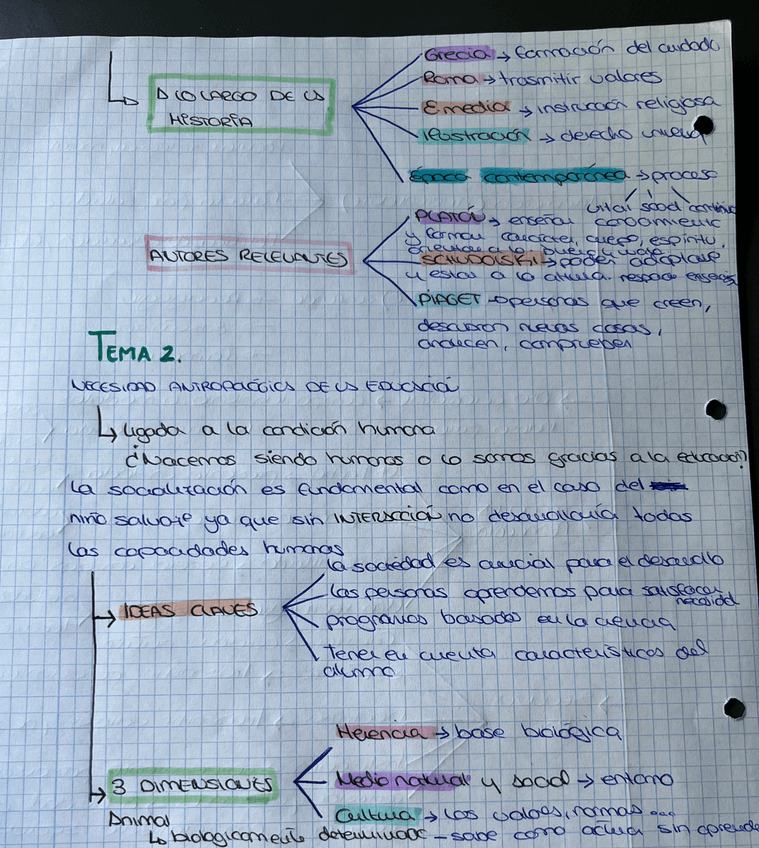 A LO LARGO DE LA
HISTORIA
Grecia → formación del ciudada
Roma → trasmitir valores
E.media → instrucción religiosa
Ilustración → derecho
Época contemporánea → proceso
vital social continuo
AUTORES RELEVANTES
PLATÓN → enseñar conocimiento
y formar carácter, cuerpo, espíritu,
→ poder adaptarse
y estar a la altura respecto
PIAGET → personas que creen,
descubran nuevas cosas,
analicen, comprueben
TEMA 2.
NECESIDAD ANTROPOLÓGICA DE LA EDUCACIÓN
↳ ligada a la condición humana
¿Nacemos siendo humanos o lo somos gracias a la educación?
La socialización es fundamental como en el caso del
niño salvaje ya que sin INTERACCIÓN no desarrollaría todas
las capacidades humanas
→ IDEAS CLAVES
la sociedad es crucial para el desarrollo
las personas aprendemos para satisfacer
necesidad
programas basados en la ciencia
Tener en cuenta características del
alumno
→ 3 DIMENSIONES
Herencia → base biológica
Medio natural y social → entorno
Cultura → los valores, normas...
Animal
↳ biologicamente determinado - sabe como actuar sin aprende